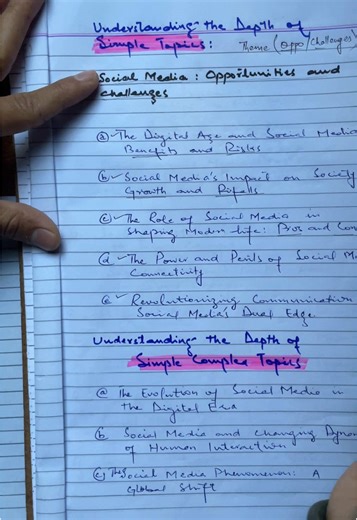 Understanding the Depth of
Simple Topics:
Theme (Oppo/Challenges)
Social Media: Opportunities and
challenges
(a) The Digital Age and Social Media
Benefits and Risks
(b) Social Media's Impact on Society
Growth and Pitfalls
(c) The Role of Social Media in
Shaping Modern life: Pros and Con
(d The Power and Perils of Social M
Connectivity
(e) Revolutionizing Communication
Social Media's Dual Edge
Understanding the Depth of
Simple Complex Topics
(a) The Evolution of Social Media in
the Digital Era
(b Social Media and Changing Dynam
of Human Interaction
(c) The Social Media Phenomenon: A
Global Shift